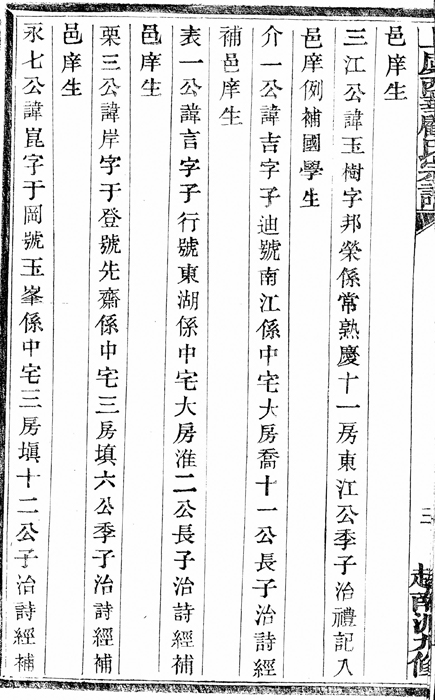 邑庠生
三江公諱玉樹字邦榮係常熟慶十一房東江公季子治禮記入
邑庠例補國學生
介一公諱吉字子迪號南江係中宅大房喬十一公長子治詩經
補邑庠生
表一公諱言字子行號東湖係中宅大房淮二公長子治詩經補
邑庠生
栗三公諱岸字于登號先齋係中宅三房填六公季子治詩經補
邑庠生
永七公諱崑字于岡號玉峯係中宅三房填十二公子治詩經補